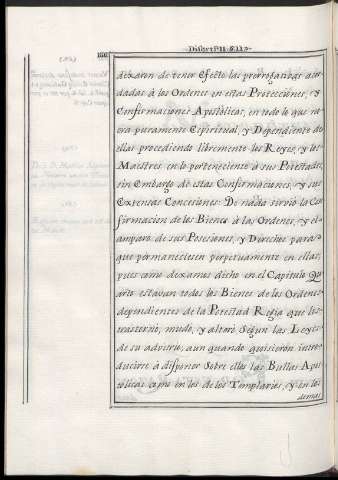 150
Disert.n II. §. II.
dexaron de tener Efecto las prerrogativas acor
dadas à los Ordenes en estas Protecciones, y
Confirmaciones Apostolicas, en todo lo que no
era puramente Espiritual, y Dependiente de
ellas procediendo libremente los Reyes, y los
Maestres en lo perteneciente à sus Potestades,
sin Embargo de estas Confirmaciones, y sus
Extensas Concesiones: De nada sirviò la Con
firmacion de los Bienes à las Ordenes, y el
amparo de sus Posesiones, y Derechos para
que permaneciesen perpetuamente en ellas,
pues como dexamos dicho en el Capitulo Qu
arto estavan todos los Bienes de los Ordenes
dependientes de la Potestad Regia que los
trastornò, mudo, y alterò Segun las Leyes
de su advitrio, aun quando quisieròn intro
ducirse à disponer Sobre ellos las Bullas Apos
tolicas como en los de los Templarios, y en los
demas